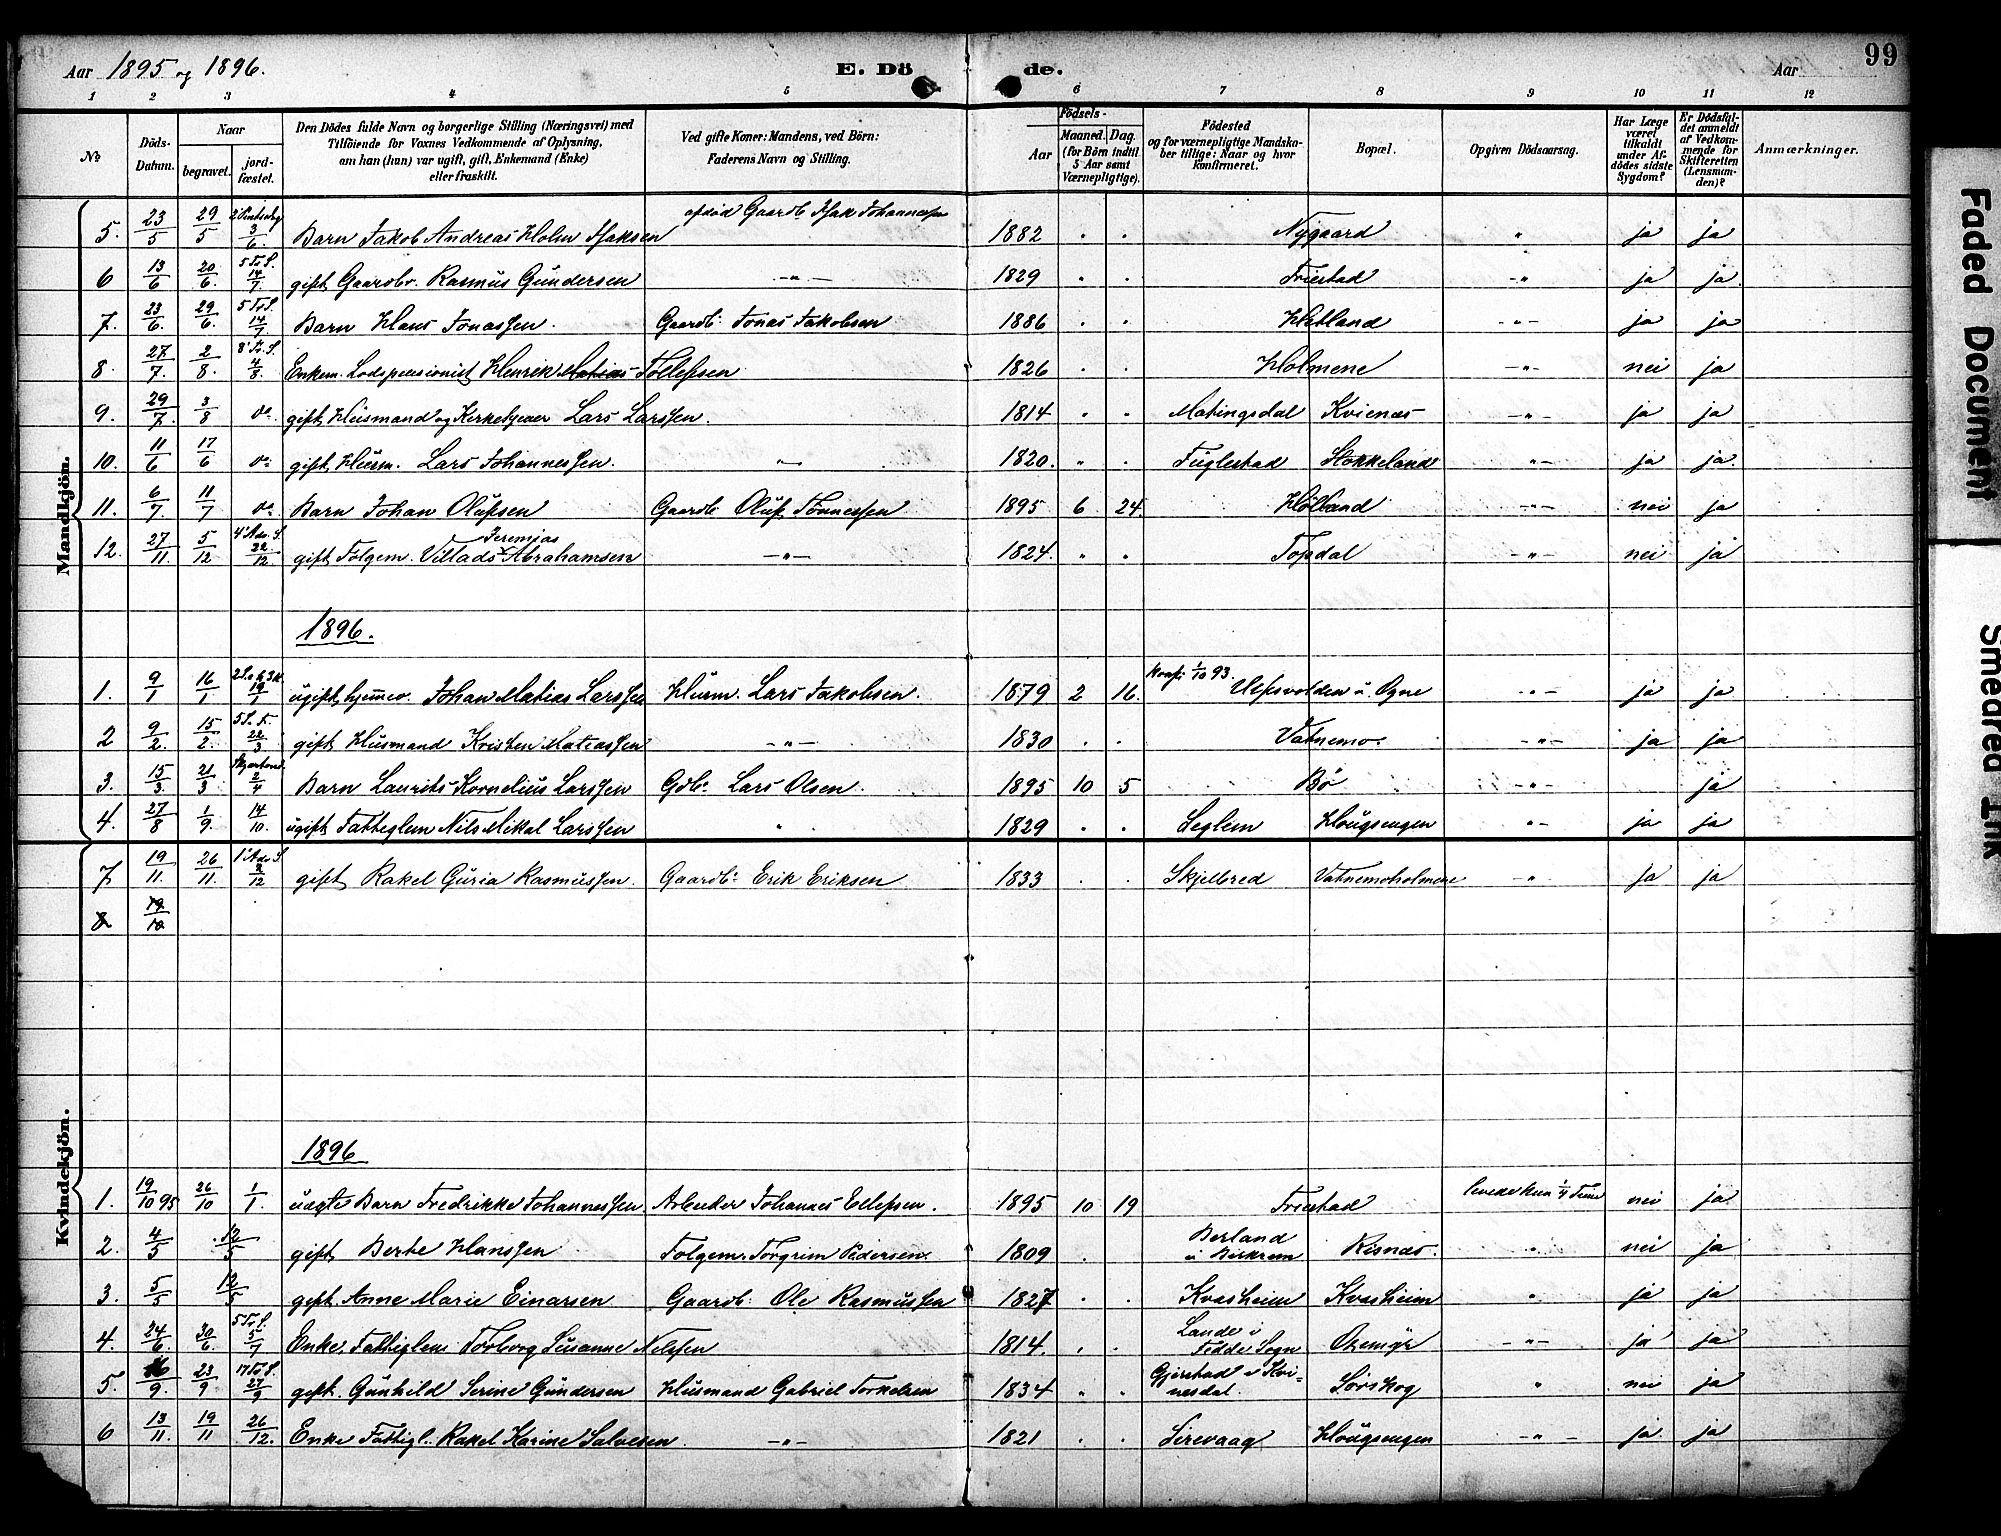 Aar 1895 og 1896. E. Dö de. Aar 99
1 2 3 4 5 6 7 8 9 10 11 12
No
Döds-Datum.
Naar begravet. jord-fæstet.
Den Dödes fulde Navn og borgerlige Stilling (Næringsvei) med Tilföiende for Voxnes Vedkommende af Oplysning, om han (hun) var ugift, gift, Enkemand (Enke) eller fraskilt.
Ved gifte Koner: Mandens, ved Börn: Faderens Navn og Stilling.
Födsels- Aar Maaned. Dag. (for Börn indtil 5 Aar samt Værnepligtige).
Födested og for værnepligtige Mandskaber tillige: Naar og hvor konfirmeret.
Bopæl.
Opgiven Dödsaarsag.
Har Læge været tilkaldt under Afdödes sidste Sygdom?
Er Dödsfaldet anmeldt af Vedkommende for Skifteretten (Lensmanden)?
Anmærkninger.
Mandkjön.
5. 23/5 29/5 3/6. Barn Jakob Andreas Holm Isaksen afdöd Gaardb Isak Johannessen 1882 " . Nygaard " ja ja
6 13/6 20/6. 5 Tr. S. 14/7 gift Gaardbr. Rasmus Gundersen -"- 1829 . . Friestad -"- ja ja.
7. 23/6. 29/6. 5 Tr S. 14/7. Barn Hans Jonassen. Gaardb. Jonas Jakobsen 1886 . . Hetland -"- ja ja
8. 27/7. 2/8. 8' Tr. S. 4/8. Enkem. Lodspensionist Henrik Matias Tollefsen 1826 . . Holmene -"- nei ja
9. 29/7. 3/8 do gift Husmand og Kirketjener Lars Larssen. 1814 " . Matingsdal Kvienæs -"- ja ja
10. 11/6 17/6 do gift Husm. Lars Johannessen. -"- 1820. " . Fuglestad Stokkeland -"- ja ja.
11. 6/7. 11/7 do Barn Johan Olufsen Gaardb Oluf Tönnessen 1895 6 24. Hölland -"- nei ja
12. 27/11. 5/12 4' Adv. S. 22/12 gift Folgem. Villads Jeremias Abrahamsen -"- 1824. " . Topdal -"- nei ja
1896.
1. 9/1 16/1 19/1 ugift hjemmev. Johan Matias Larssen Husm. Lars Jakobsen. 1879 2 16. Konf. 1/10 93. Ulfsvolden i Ogne "- ja ja
2 9/2. 15/2. 22/3 gift Husmand Kristen Matiassen -"- 1830 . . Vatnemo. -"- ja ja
3. 15/3. 21/3 2/4 Barn Laurits Kornelius Larssen Gdb. Lars Olsen. 1895 10 5 Bö -"- ja
4. 27/8 1/9. 14/10. ugift Fattiglem Nils Mikal Larssen " 1829 . . Seglem Hougsengen "- ja ja
Kvindekjön.
7 19/11. 26/11. 1' Adv S 2/12 gift Rakel Guria Rasmussen. Gaardb. Erik Eriksen 1833 . . Skjelbred Vatnemoholmene -"- ja ja
8 19/10
1896
1. 19/10 95 26/10 1/1. uægte Barn Fredrikke Johannessen Arbeider Johannes Ellefsen. 1895 10 19 Friestad levede kun 1/4 Time nei ja
2. 4/5 12/5 gift Berte Hanssen Folgem. Torgrim Pedersen. 1809 . Berland i Birkrem Risnæs. " nei ja
3. 5/5 12/5 gift Anne Marie Einarsen Gaardb. Ole Rasmussen 1827 . . Kvasheim Kvasheim " ja ja
4. 24/6. 30/6. 5 Tr S. 5/7 Enke. Fattiglem Torborg Susanne Nilssen 1814. . . Lande i Fedde Sogn -"- ja ja
5. 16/9. 23/9 17 Tr S. 27/9 gift. Gunhild Serine Gundersen Husmand Gabriel Torkelsen 1834 " . Gjerstad i Kvinesdal. Sörskog " nei ja
6 13/11. 19/11 26/12. Enke Fattigl. Rakel Karine Salvesen. -"- 1821 . . Sirevaag Hougsengen -"- ja. ja
Faded Document
Smeared Ink